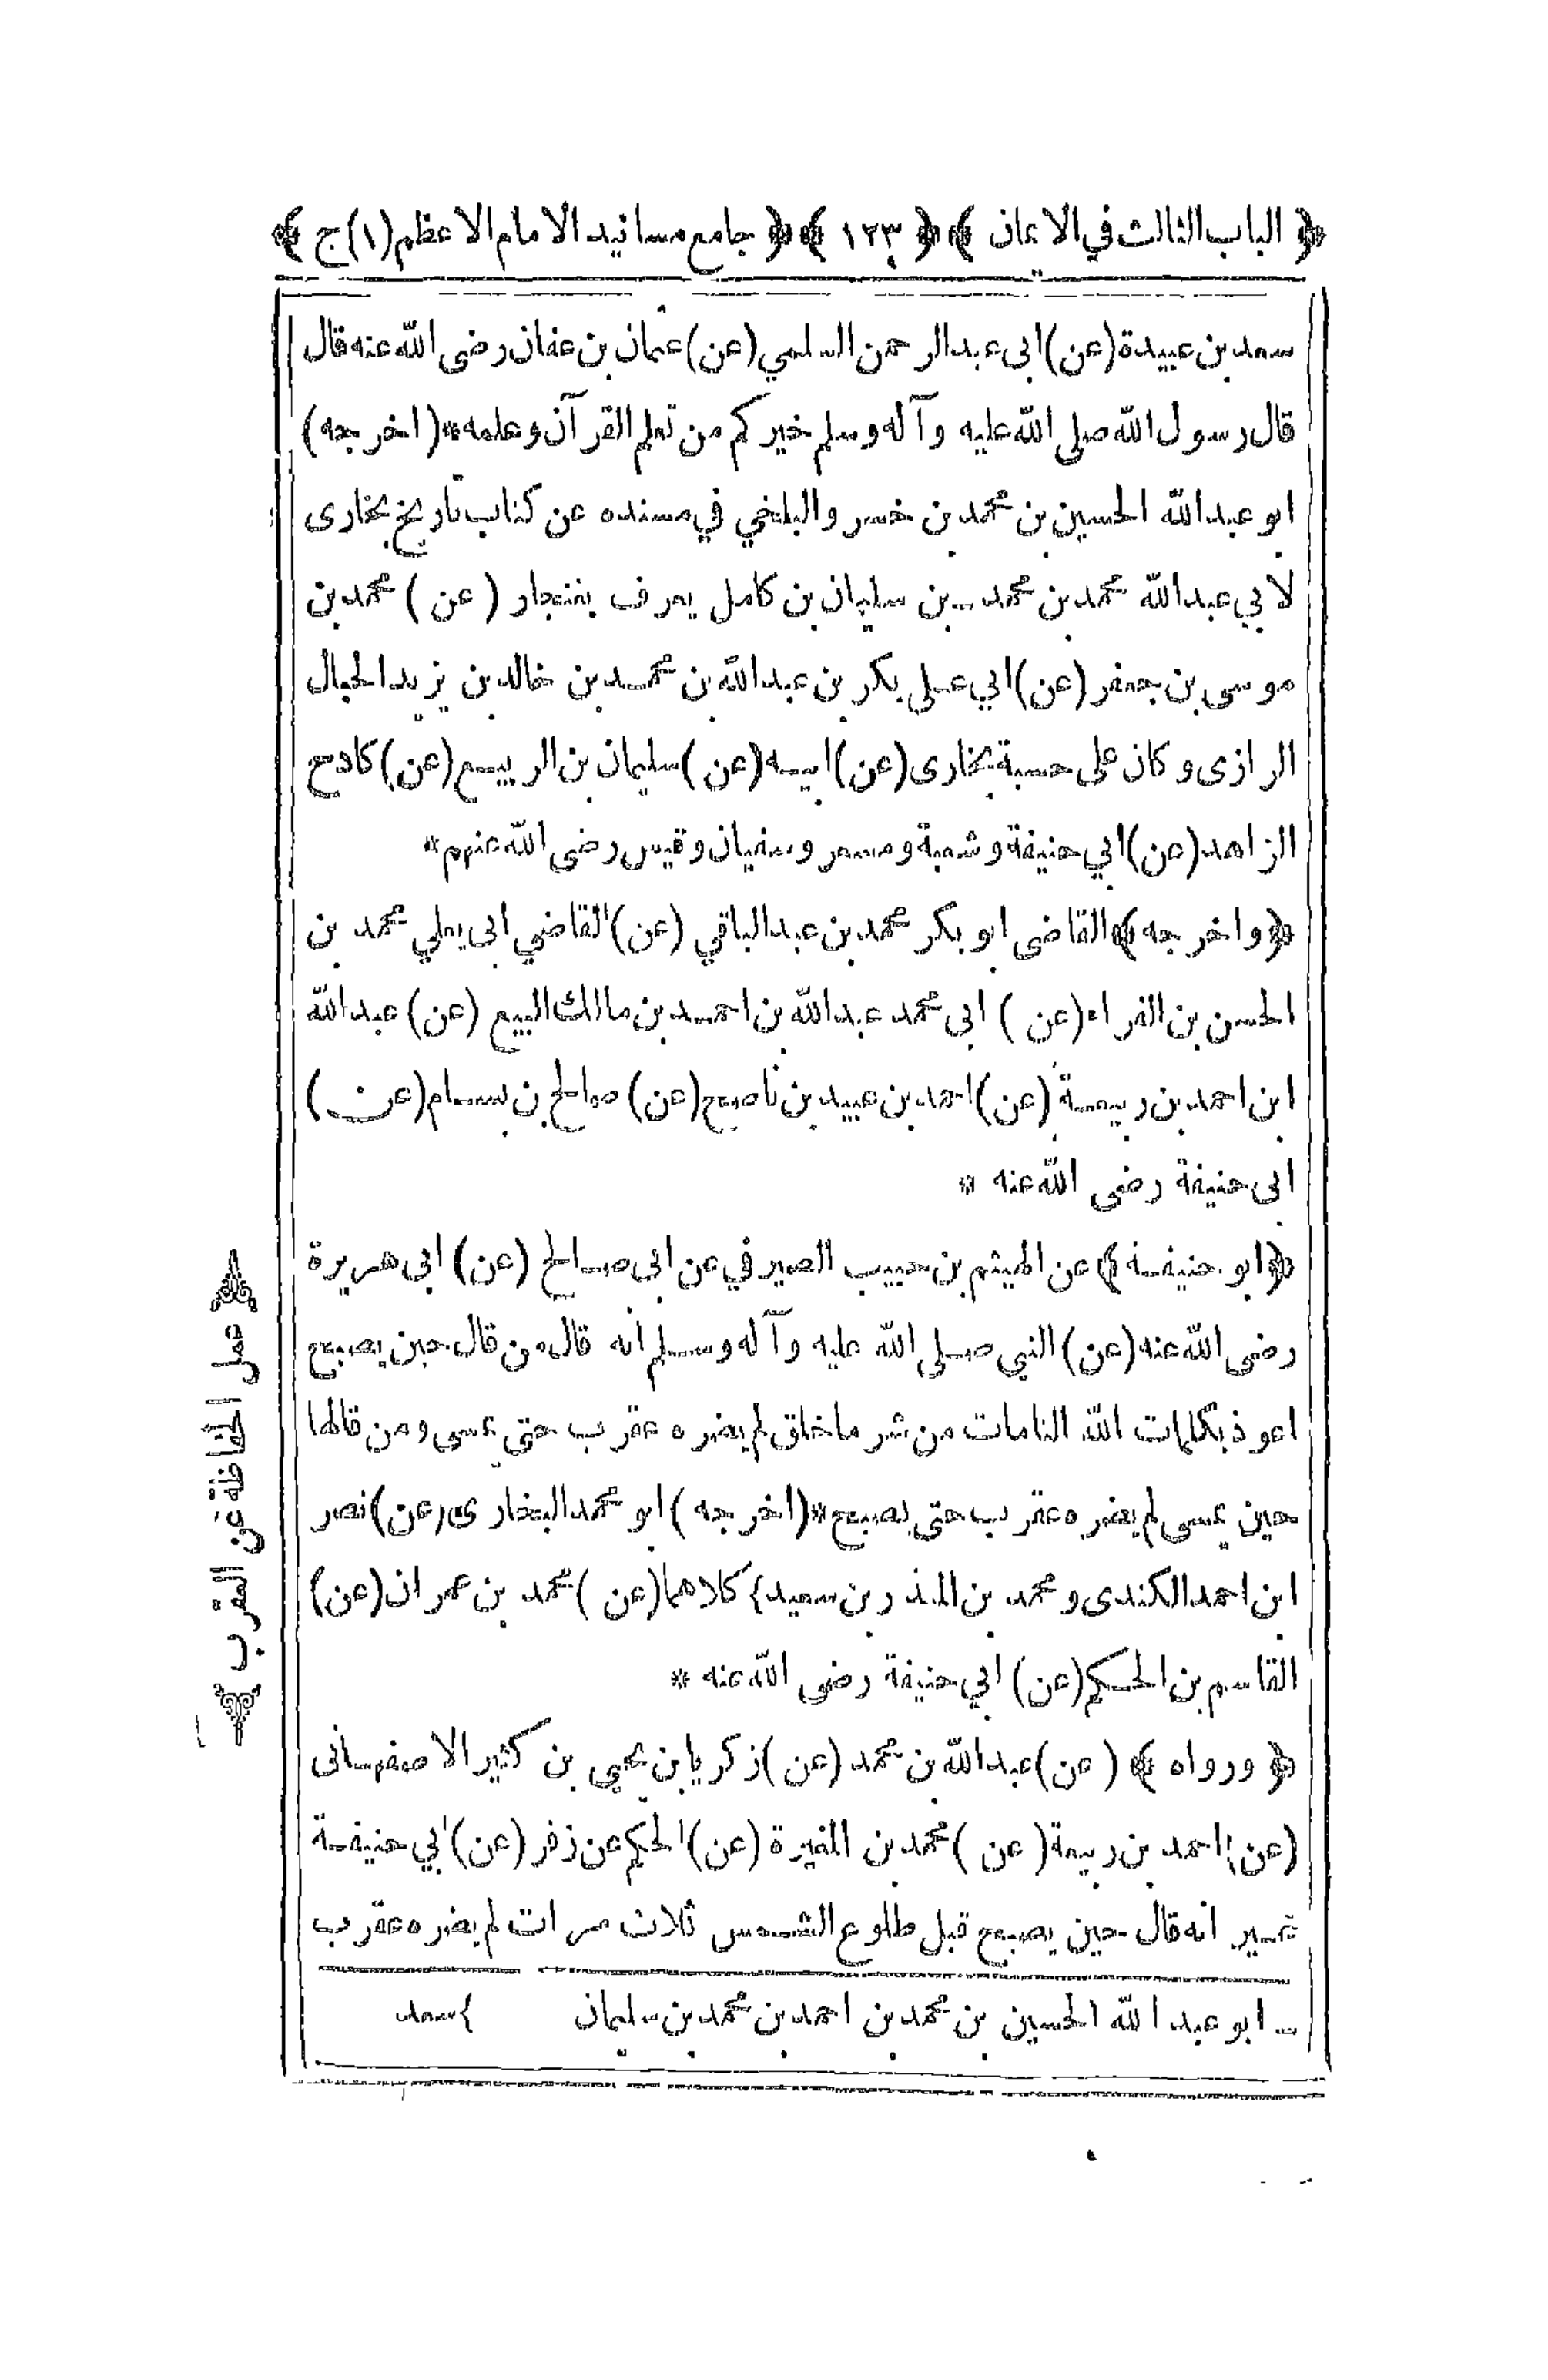 ﴿ الباب الثالث في الايمان ﴾ ﴿ ١٢٣ ﴾ ﴿ جامع مسانيد الامام الاعظم (١) ج ﴾
سعد بن عبيدة (عن) ابى عبد الرحمن السلمي (عن) عثمان بن عفان رضى الله عنه قال
قال رسول الله صلى الله عليه وآله وسلم خيركم من تعلم القرآن وعلمه * (اخرجه)
ابو عبد الله الحسين بن محمد بن خسرو البلخي في مسنده عن كتاب تاريخ بخارى
لابي عبد الله محمد بن محمد بن سليمان بن كامل يعرف بغنجار (عن) محمد بن
موسى بن جعفر (عن) ابي على بكر بن عبد الله بن محمد بن خالد بن يزيد الحبال
الرازى وكان على حسبة بخارى (عن) ابيه (عن) سليمان بن الربيع (عن) كادح
الزاهد (عن) ابي حنيفة وشعبة ومسعر وسفيان وقيس رضى الله عنهم *
﴿ واخرجه ﴾ القاضى ابو بكر محمد بن عبد الباقي (عن) القاضي ابى يعلي محمد بن
الحسن بن الفراء (عن) ابى محمد عبد الله بن احمد بن مالك البيع (عن) عبد الله
ابن احمد بن ربيعة (عن) احمد بن عبيد بن ناصح (عن) صالح بن بسام (عن)
ابى حنيفة رضى الله عنه *
﴿ ابو حنيفة ﴾ عن الهيثم بن حبيب الصيرفي عن ابى صالح (عن) ابى هريرة
رضى الله عنه (عن) النبي صلى الله عليه وآله وسلم انه قال من قال حين يصبح
اعوذ بكلمات الله التامات من شر ما خلق لم يضره عقرب حتى يمسى ومن قالها
حين يمسى لم يضره عقرب حتى يصبح * (اخرجه) ابو محمد البخارى (عن) نصر
ابن احمد الكندى ومحمد بن المنذر بن سعيد } كلاهما (عن) محمد بن عمران (عن)
القاسم بن الحكم (عن) ابي حنيفة رضى الله عنه *
﴿ ورواه ﴾ (عن) عبد الله بن محمد (عن) زكريا بن يحيى بن كثير الاصفهانى
(عن) احمد بن ربيعة (عن) محمد بن المغيرة (عن) الحكم عن زفر (عن) ابي حنيفة
غير انه قال حين يصبح قبل طلوع الشمس ثلاث مرات لم يضره عقرب
ابو عبد الله الحسين بن محمد بن احمد بن محمد بن سليمان } سعد
﴿ عمل الحفاظة عن العقرب ﴾